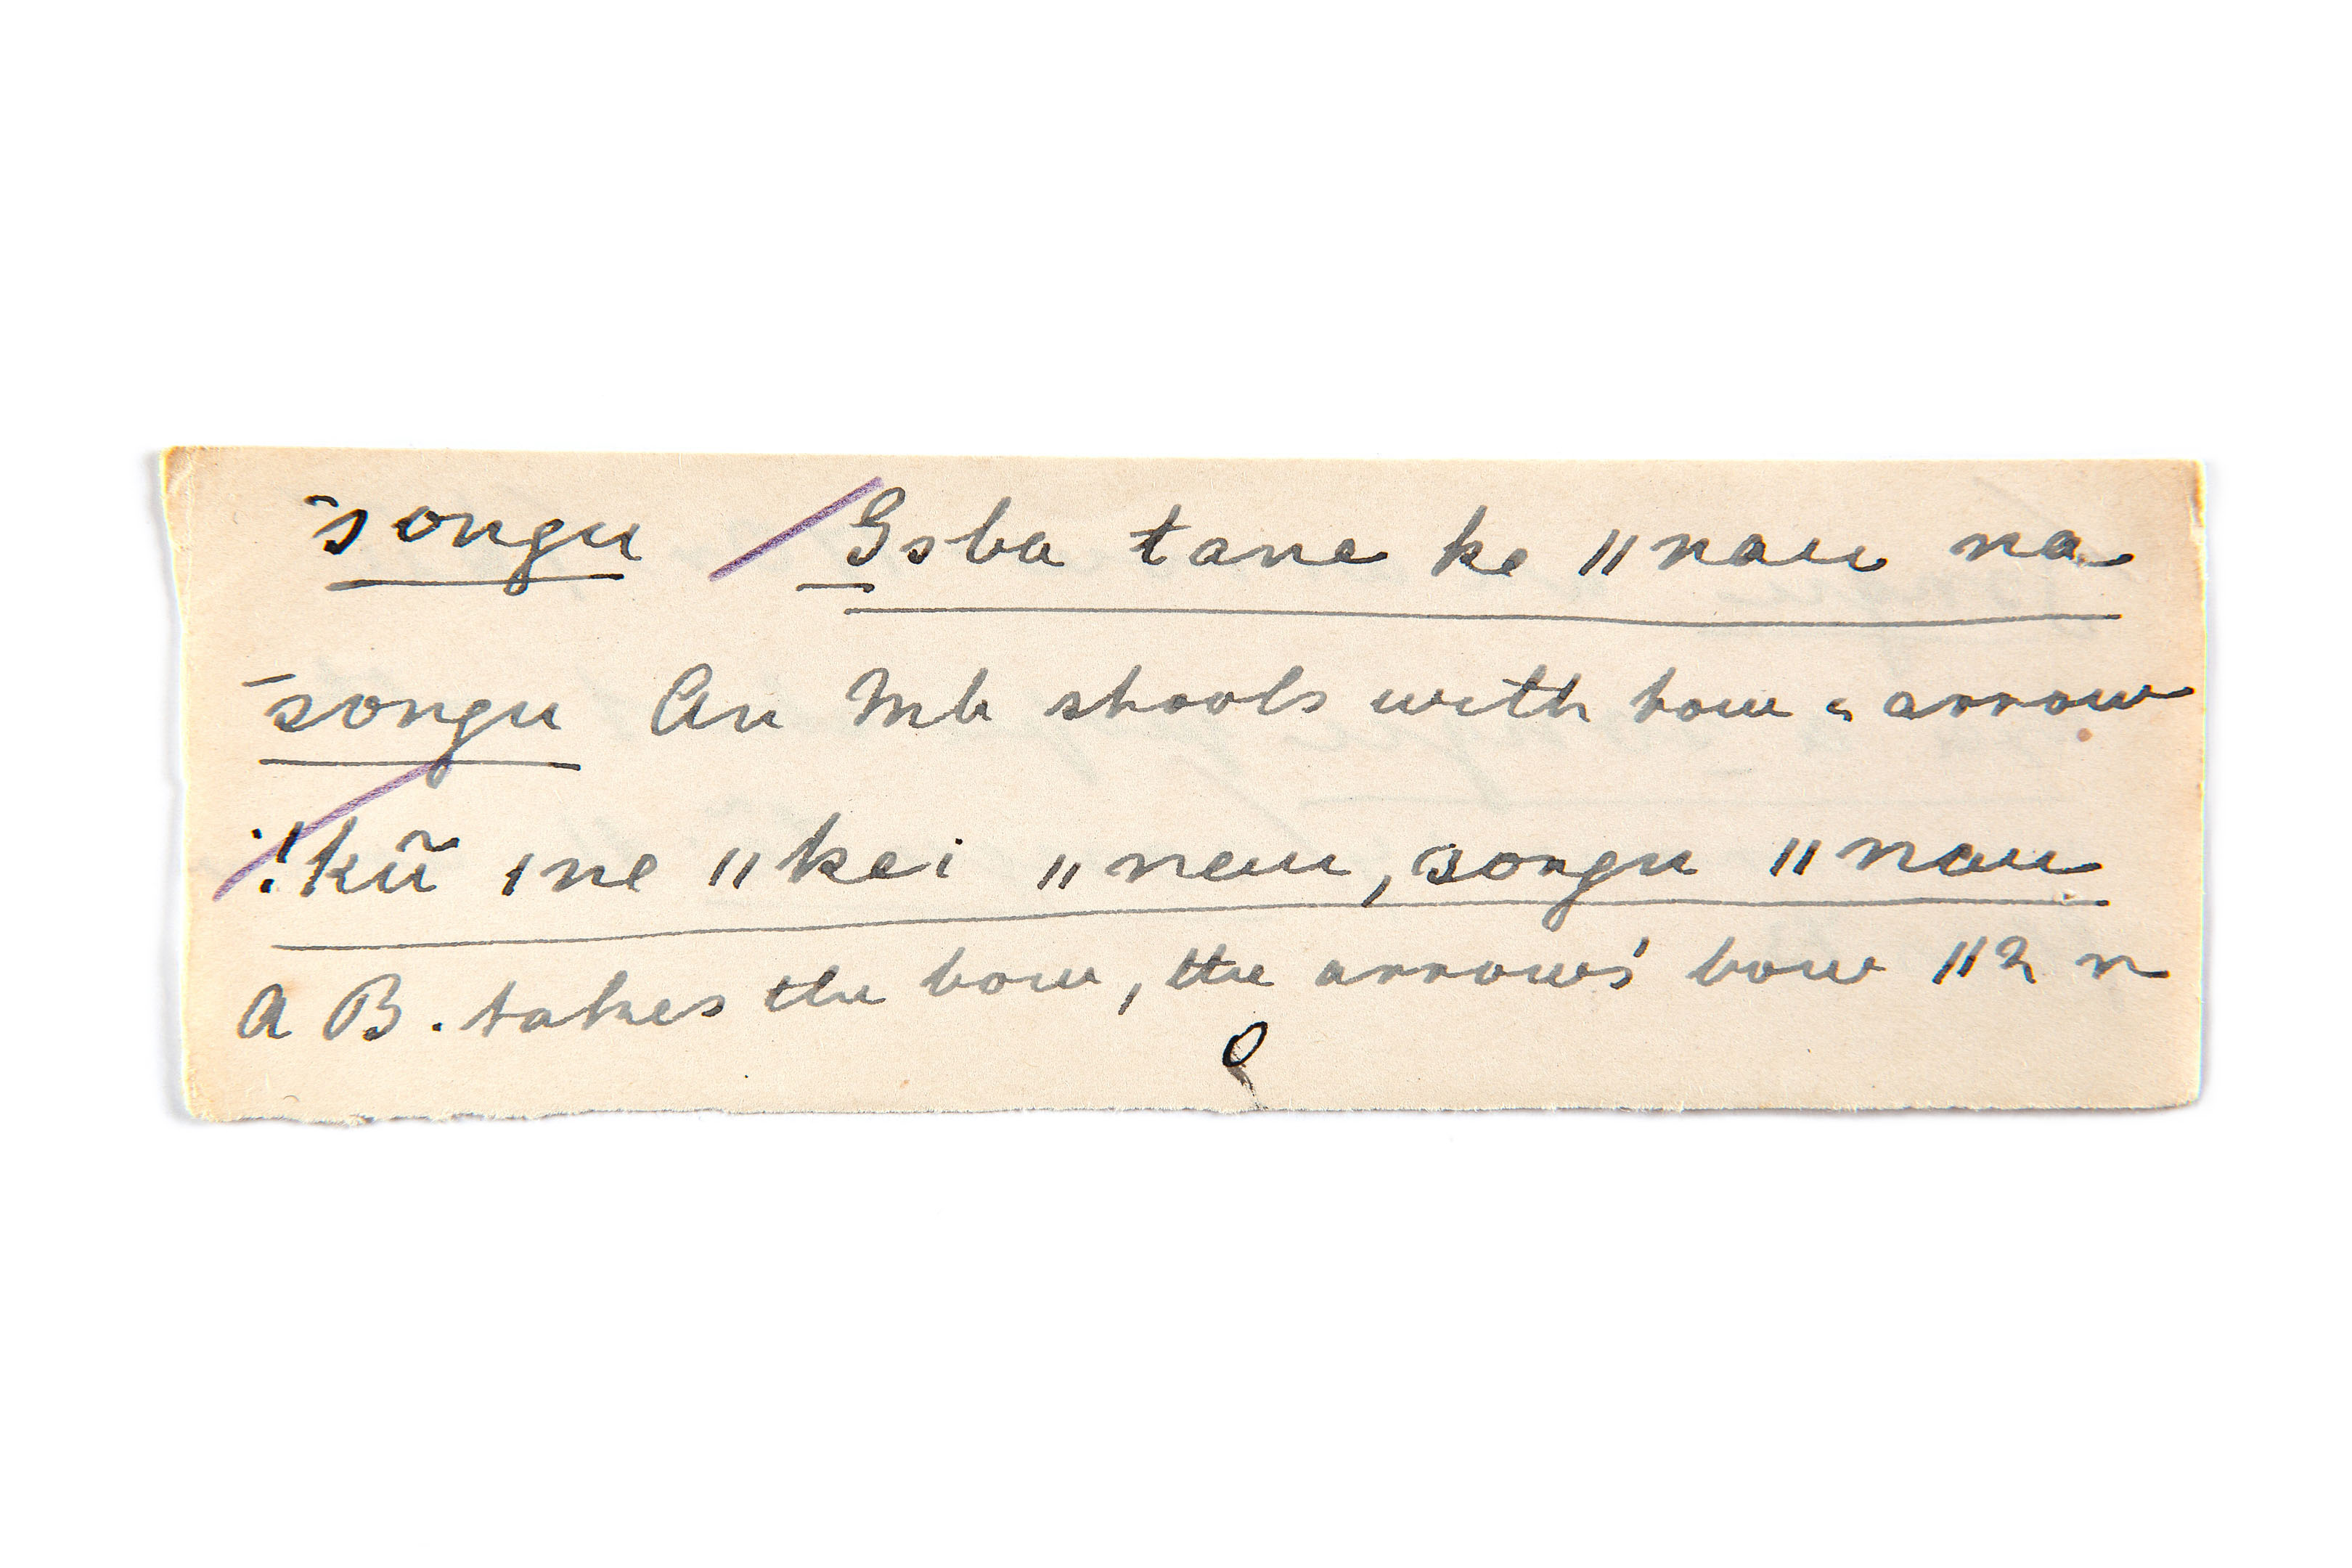 ‾songu / Gsba tane ke ǁnau na
‾songu An Mb shoots with bow & arrow
!kũ ǀne ǁkei ǁnau, songu ǁnau
A B. takes the bow, the arrows' bow ǁ2 n